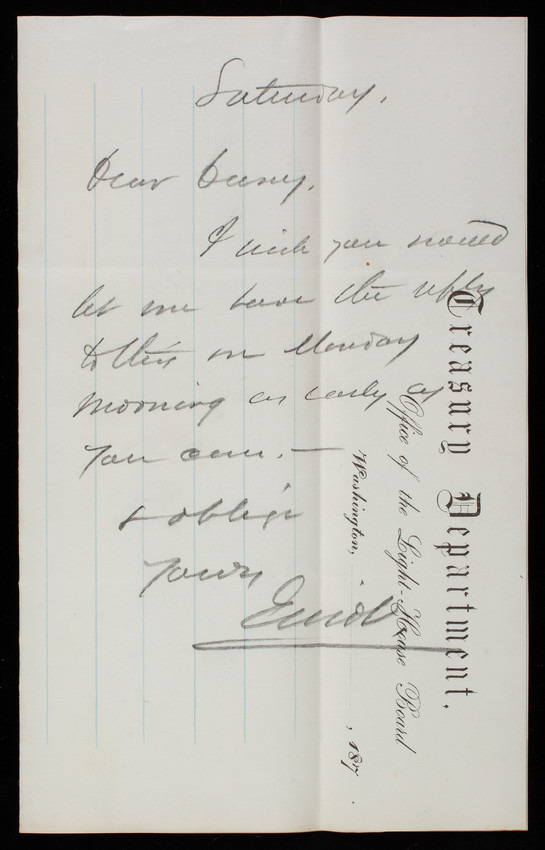 Saturday.
Dear Casey,
I wish you would
let me have the reply
to this on Monday
morning as early as
you can. —
& oblige
Yours
Treasury Department,
Office of the Light-House Board
Washington,
, 187 .